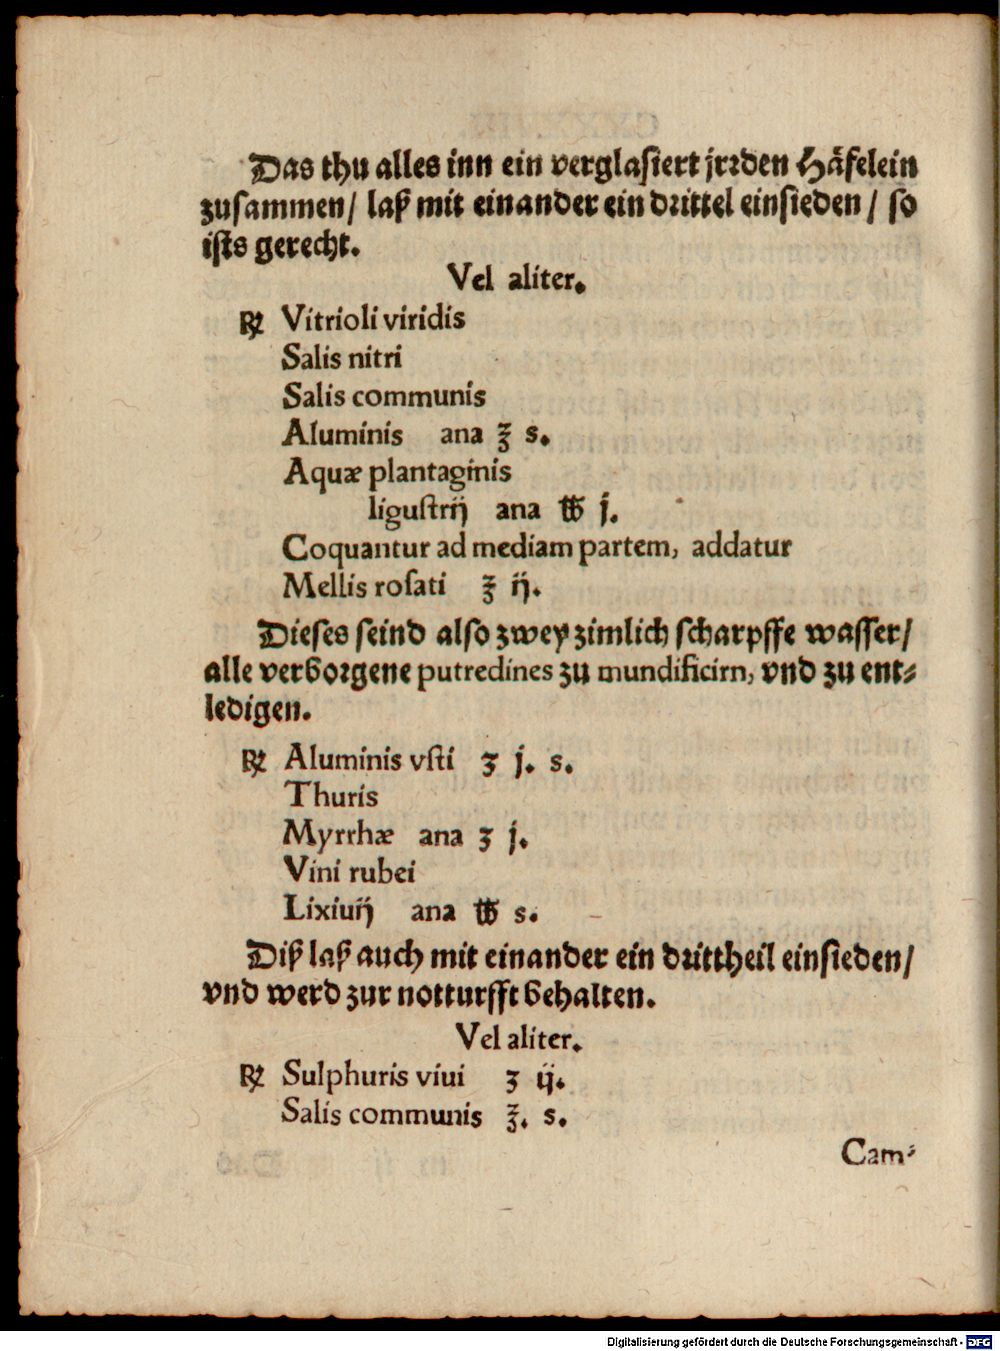 Das thu alles inn ein verglaſiert jrꝛden Haͤfelein
zuſammen/ laß mit einander ein dꝛittel einſieden/ ſo
iſts gerecht.
Vel aliter.
℞ Vitrioli viridis
Salis nitri
Salis communis
Aluminis ana ℥ s.
Aquæ plantaginis
liguſtrij ana ℔ j.
Coquantur ad mediam partem, addatur
Mellis roſati ℥ ij.
Dieſes ſeind alſo zwey zimlich ſcharpffe waſſer/
alle verboꝛgene putredines zu mundificirn, vnd zu ent⸗
ledigen.
℞ Aluminis vſti ʒ j. s.
Thuris
Myrrhæ ana ʒ j.
Vini rubei
Lixiuij ana ℔ s.
Diß laß auch mit einander ein dꝛittheil einſieden/
vnd werd zur notturfft behalten.
Vel aliter.
℞ Sulphuris viui ʒ ij.
Salis communis ℥. s.
Cam⸗
Digitalisierung gefördert durch die Deutsche Forschungsgemeinschaft - DFG